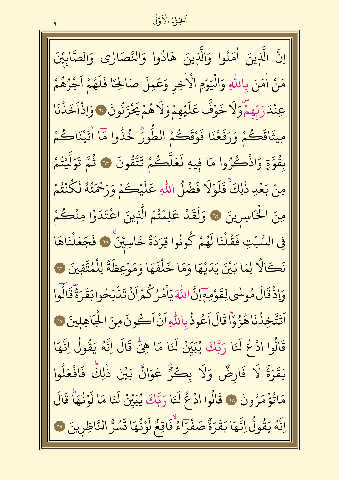 الجزء الأول
٩
اِنَّ الَّذِينَ اٰمَنُوا وَالَّذِينَ هَادُوا وَالنَّصَارٰى وَالصَّابِـِٔينَ
مَنْ اٰمَنَ بِاللّٰهِ وَالْيَوْمِ الْاٰخِرِ وَعَمِلَ صَالِحًا فَلَهُمْ اَجْرُهُمْ
عِنْدَ رَبِّهِمْ وَلَا خَوْفٌ عَلَيْهِمْ وَلَا هُمْ يَحْزَنُونَ ۝ وَاِذْ اَخَذْنَا
مِيثَاقَكُمْ وَرَفَعْنَا فَوْقَكُمُ الطُّورَ خُذُوا مَا اٰتَيْنَاكُمْ
بِقُوَّةٍ وَاذْكُرُوا مَا فِيهِ لَعَلَّكُمْ تَتَّقُونَ ۝ ثُمَّ تَوَلَّيْتُمْ
مِنْ بَعْدِ ذٰلِكَ فَلَوْلَا فَضْلُ اللّٰهِ عَلَيْكُمْ وَرَحْمَتُهُ لَكُنْتُمْ
مِنَ الْخَاسِرِينَ ۝ وَلَقَدْ عَلِمْتُمُ الَّذِينَ اعْتَدَوْا مِنْكُمْ
فِي السَّبْتِ فَقُلْنَا لَهُمْ كُونُوا قِرَدَةً خَاسِـِٔينَ ۝ فَجَعَلْنَاهَا
نَكَالًا لِمَا بَيْنَ يَدَيْهَا وَمَا خَلْفَهَا وَمَوْعِظَةً لِلْمُتَّقِينَ ۝
وَاِذْ قَالَ مُوسٰى لِقَوْمِهِ اِنَّ اللّٰهَ يَأْمُرُكُمْ اَنْ تَذْبَحُوا بَقَرَةً قَالُوا
اَتَتَّخِذُنَا هُزُوًا قَالَ اَعُوذُ بِاللّٰهِ اَنْ اَكُونَ مِنَ الْجَاهِلِينَ ۝
قَالُوا ادْعُ لَنَا رَبَّكَ يُبَيِّنْ لَنَا مَا هِيَ قَالَ اِنَّهُ يَقُولُ اِنَّهَا
بَقَرَةٌ لَا فَارِضٌ وَلَا بِكْرٌ عَوَانٌ بَيْنَ ذٰلِكَ فَافْعَلُوا
مَا تُؤْمَرُونَ ۝ قَالُوا ادْعُ لَنَا رَبَّكَ يُبَيِّنْ لَنَا مَا لَوْنُهَا قَالَ
اِنَّهُ يَقُولُ اِنَّهَا بَقَرَةٌ صَفْرَاءُ فَاقِعٌ لَوْنُهَا تَسُرُّ النَّاظِرِينَ ۝